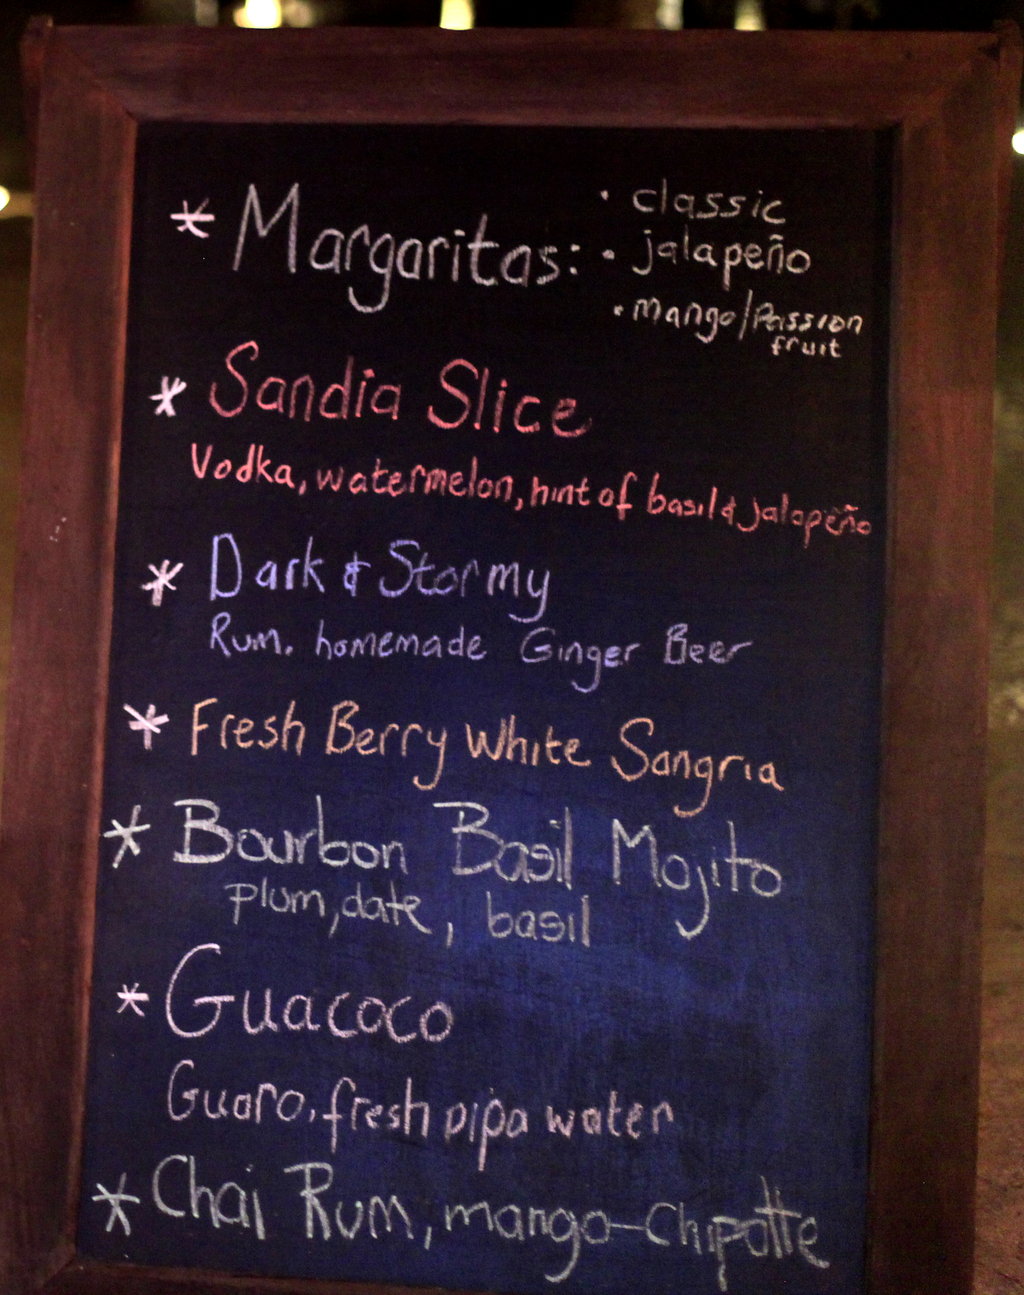 * Margaritas: · classic
· jalapeño
· mango/Passion
fruit
* Sandia Slice
Vodka, watermelon, hint of basil & jalapeño
* Dark & Stormy
Rum. homemade Ginger Beer
* Fresh Berry White Sangria
* Bourbon Basil Mojito
plum, date, basil
* Guacoco
Guaro, fresh pipa water
* Chai Rum, mango-Chipotte